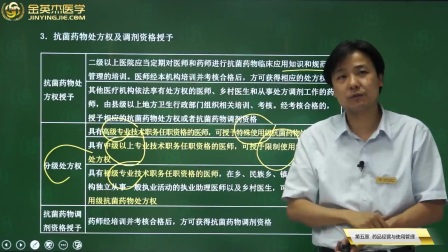 金英杰医学
JINYINGJIE.COM
3．抗菌药物处方权及调剂资格授予
抗菌药物处方
权授予
二级以上医院应当定期对医师和药师进行抗菌药物临床应用知识和规范
管理的培训。医师经本机构培训并考核合格后，方可获得相应的处方权
其他医疗机构依法享有处方权的医师、乡村医生和从事处方调剂工作的药
师，由县级以上地方卫生行政部门组织相关培训、考核。经考核合格的，
授予相应的抗菌药物处方权或者抗菌药物调剂资格
分级处方权
具有高级专业技术职务任职资格的医师，可授予特殊使用级抗菌药物处
具有中级以上专业技术职务任职资格的医师，可授予限制使用
处方权
具有初级专业技术职务任职资格的医师，在乡、民族乡、镇
构独立从事一般执业活动的执业助理医师以及乡村医生，可
用级抗菌药物处方权
抗菌药物调
剂资格授予
药师经培训并考核合格后，方可获得抗菌药物调剂资格
第五章 药品经营与使用管理